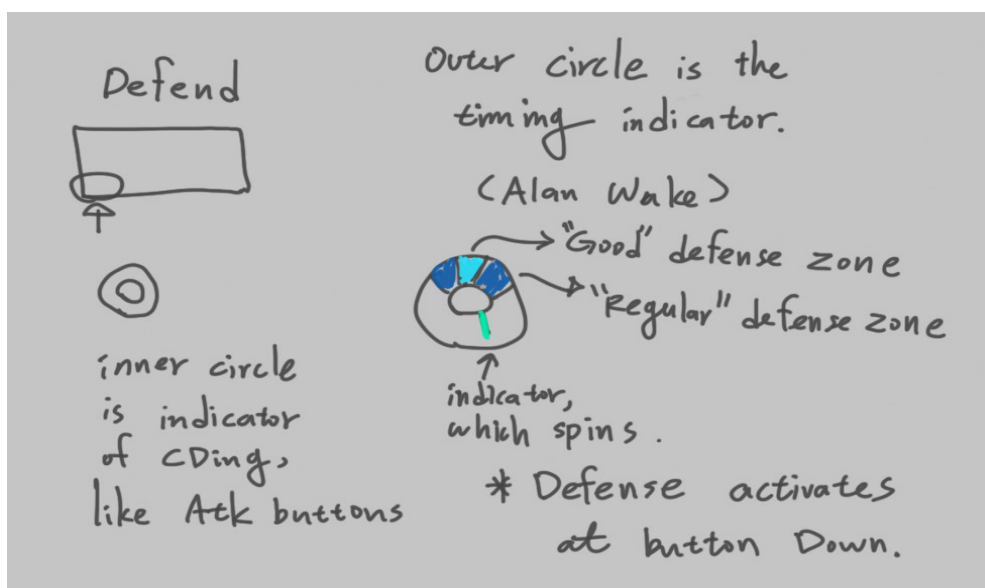 Defend
inner circle
is indicator
of CDing,
like Atk buttons
Outer circle is the
timing indicator.
(Alan Wake)
"Good" defense zone
"Regular" defense zone
indicator,
which spins.
* Defense activates
at button Down.